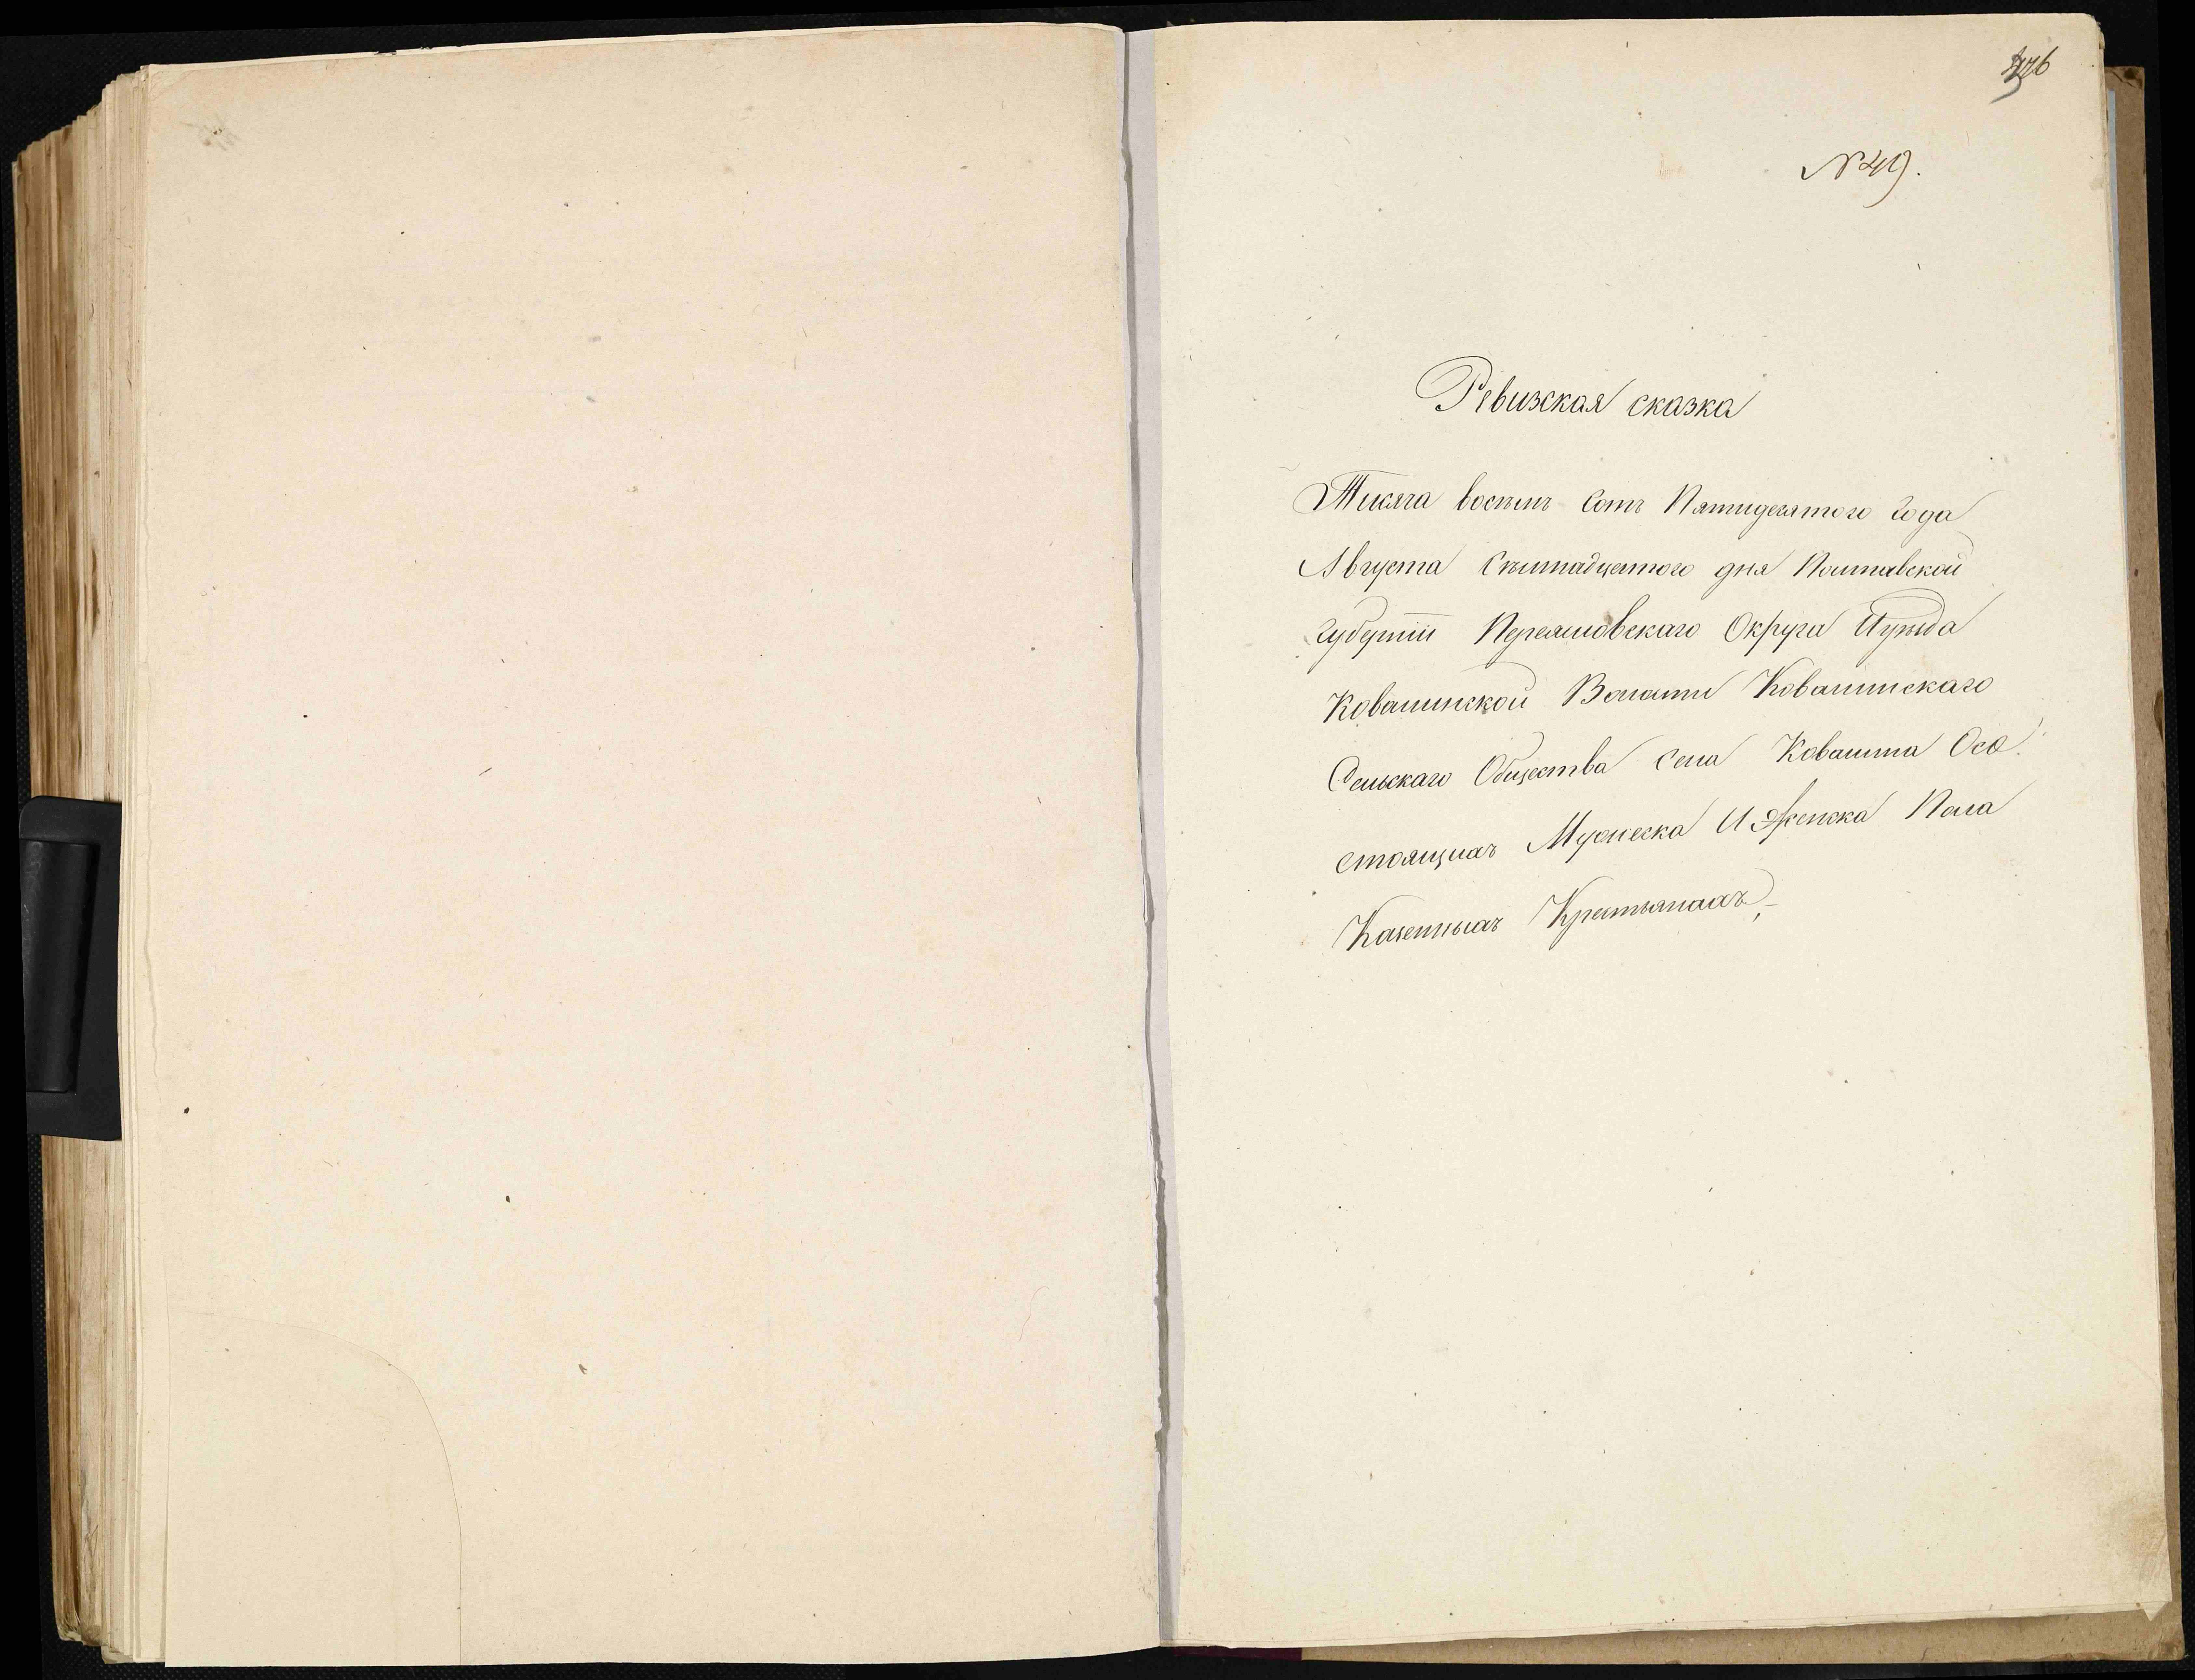 N 49.
Ревизская сказка
Тисяча восъмъ сотъ Пятидесятого года
Августа Съмнадцятого дня Полтавской
Губернiи Переяславского Округа Иуѣзда
Ковалинской Волости Ковалинскаго
Сельскаго Общества села Ковалина Осо
стоящихъ Мужеска И Женска Пола
Казенныхъ Крестьянахъ,–